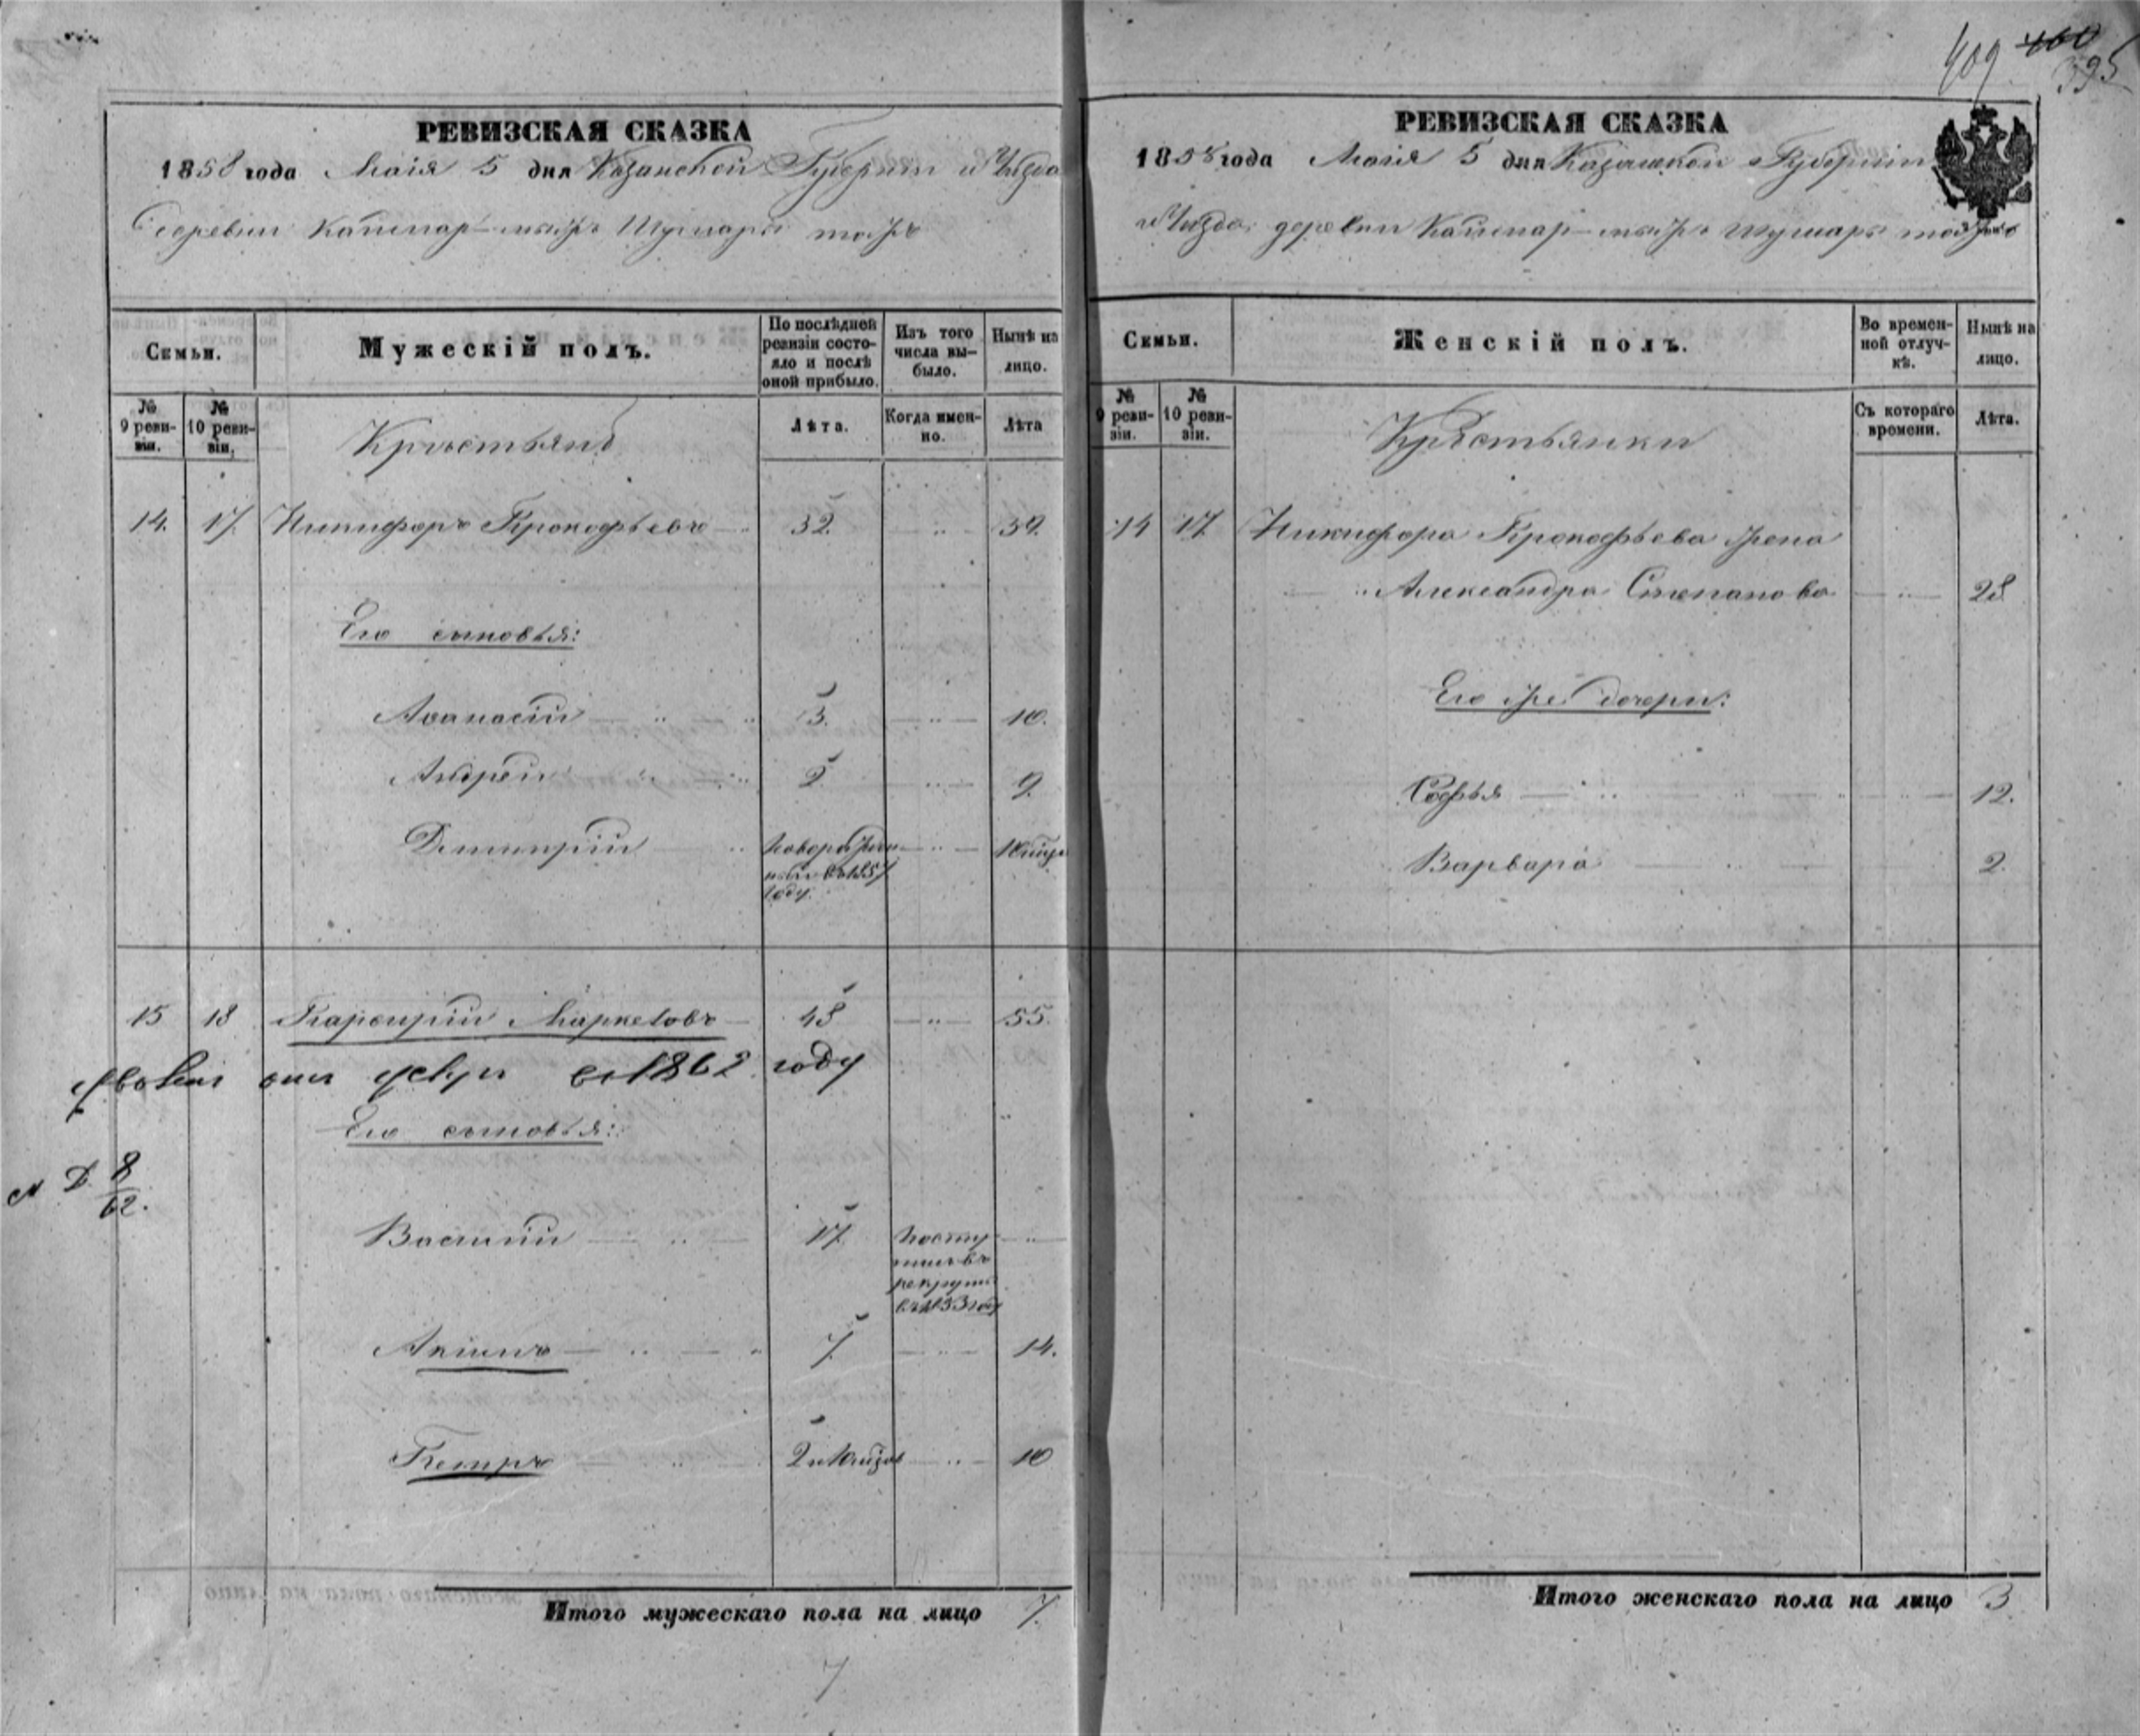 409 460
395
РЕВИЗСКАЯ СКАЗКА
1858 года Маія 5 дня Казанской Губерніи и Уѣзда
деревни
Семьи.
Мужескій полъ.
По послѣдней ревизіи состояло и послѣ оной прибыло.
Изъ того числа выбыло.
Нынѣ на лицо.
№ 9 ревизіи.
№ 10 ревизіи.
Крестьянѣ
Лѣта.
Когда именно.
Лѣта
14. 17. Никифоръ Прокофьевъ 32. 39.
Его сыновья:
Аѳанасій 3. 10.
Андрей 2. 9.
Дмитрій новорожденный въ 1857 году.
15 18 Маркеловъ 48 55.
онъ въ 1862 году
Его сыновья:
Д. 8/62.
Василій 17. поступилъ въ рекруты въ 1853 году
Акимъ 7. 14.
Петръ 2 10
Итого мужескаго пола на лицо 7.
7
РЕВИЗСКАЯ СКАЗКА
1858 года Маія 5 дня Казанской Губерніи
и Уѣзда деревни
Семьи.
Женскій полъ.
Во временной отлучкѣ.
Нынѣ на лицо.
№ 9 ревизіи.
№ 10 ревизіи.
Крестьянки
Съ котораго времени.
Лѣта.
14 17 Никифора Прокофьева жена
Александра Степанова 28
Его же дочери:
Софья 12.
Варвара 2.
Итого женскаго пола на лицо 3.